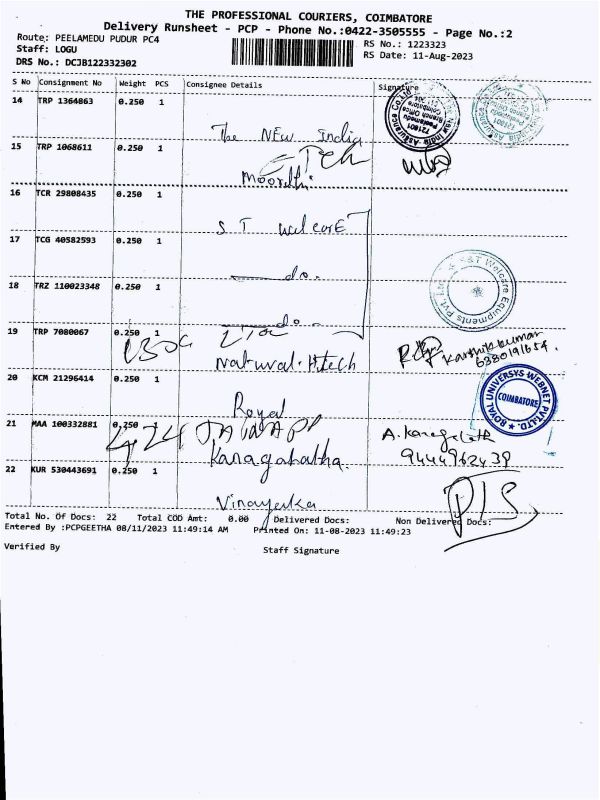 THE PROFESSIONAL COURIERS, COIMBATORE
Delivery Runsheet - PCP - Phone No.:0422-3505555 - Page No.:2
Route: PEELAMEDU PUDUR PC4
RS No.: 1223323
Staff: LOGU
RS Date: 11-Aug-2023
DRS No.: DCJB122332302
S No Consignment No Weight PCS Consignee Details Signature
14 TRP 1364863 0.250 1
The NEw India
15 TRP 1068611 0.250 1
Moorthi
16 TCR 29808435 0.250 1
S T welcarE
17 TCG 40582593 0.250 1
do.
18 TRZ 110023348 0.250 1
do.
S&T Welcare Equipments Pvt. Ltd.
19 TRP 7080067 0.250 1
Natural Hitech
Karthikkumar
6380191654
20 KCM 21296414 0.250 1
Royal
ROYAL UNIVERSYS WEBNET PVT.LTD.
COIMBATORE
21 MAA 100332881 0.250
Kanagalatha
9444962439
22 KUR 530443691 0.250 1
Vinayaka
Total No. Of Docs: 22 Total COD Amt: 0.00 Delivered Docs: Non Delivered Docs:
Entered By :PCPGEETHA 08/11/2023 11:49:14 AM Printed On: 11-08-2023 11:49:23
Verified By Staff Signature